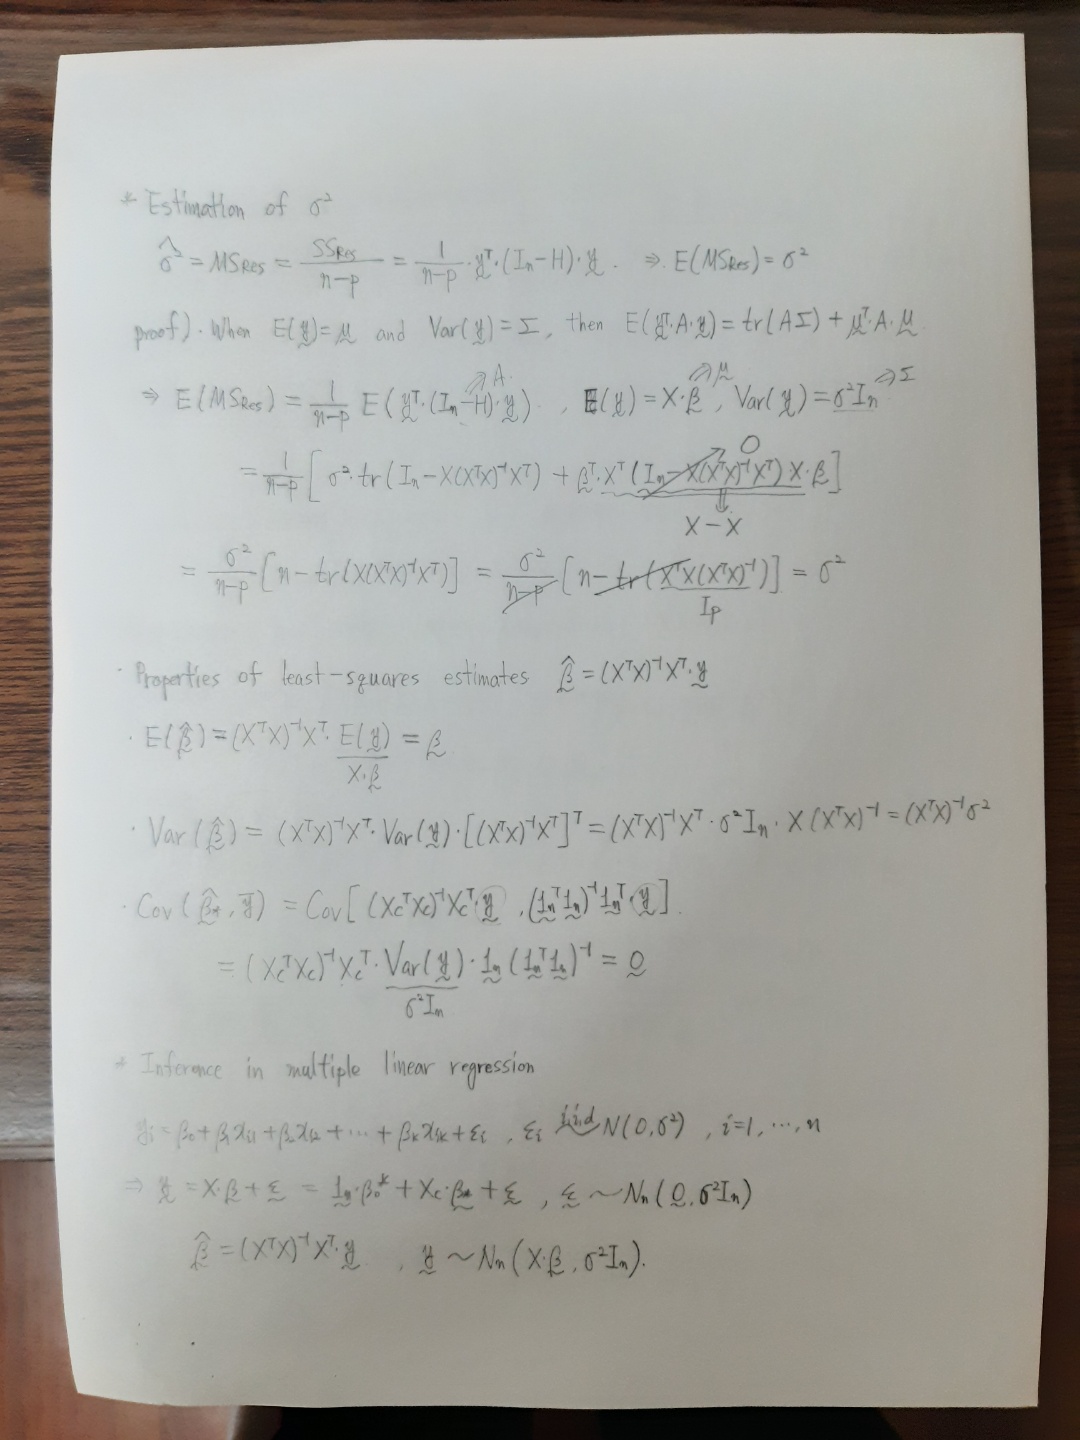 * Estimation of σ²
σ̂² = MSRes = SSRes / (n-p) = 1/(n-p) · y̰ᵀ·(In-H)·y̰. ⇒ E(MSRes) = σ²
proof). When E(y̰)=μ̰ and Var(y̰)=Σ, then E(y̰ᵀ·A·y̰) = tr(AΣ) + μ̰ᵀ·A·μ̰
⇒A ⇒μ ⇒Σ
⇒ E(MSRes) = 1/(n-p) E(y̰ᵀ·(In-H)·y̰), E(y̰) = X·β̰, Var(y̰) = σ²In
0
= 1/(n-p) [σ²·tr(In-X(XᵀX)⁻¹Xᵀ) + β̰ᵀ·Xᵀ(In-X(XᵀX)⁻¹Xᵀ)X·β̰]
⇓
X-X
= σ²/(n-p) [n-tr(X(XᵀX)⁻¹Xᵀ)] = σ²/(n-p) [n-tr(XᵀX(XᵀX)⁻¹)] = σ²
Ip
· Properties of least-squares estimates β̰̂ = (XᵀX)⁻¹Xᵀ·y̰
· E(β̰̂) = (XᵀX)⁻¹Xᵀ·E(y̰) = β̰
X·β̰
· Var(β̰̂) = (XᵀX)⁻¹Xᵀ·Var(y̰)·[(XᵀX)⁻¹Xᵀ]ᵀ = (XᵀX)⁻¹Xᵀ·σ²In·X(XᵀX)⁻¹ = (XᵀX)⁻¹σ²
· Cov(β̰̂*, ȳ) = Cov[(XcᵀXc)⁻¹Xcᵀ y̰, (1̰nᵀ1̰n)⁻¹1̰nᵀ y̰].
= (XcᵀXc)⁻¹Xcᵀ·Var(y̰)·1̰n(1̰nᵀ1̰n)⁻¹ = 0̰
σ²In
* Inference in multiple linear regression
yi = β0+β1xi1+β2xi2+···+βkxik+εi, εi i.i.d N(0,σ²), i=1,···,n
⇒ y̰ = X·β̰+ε̰ = 1̰n·β0*+Xc·β̰*+ε̰, ε̰ ~ Nn(0̰,σ²In)
β̰̂ = (XᵀX)⁻¹Xᵀ·y̰, y̰ ~ Nn(X·β̰, σ²In).